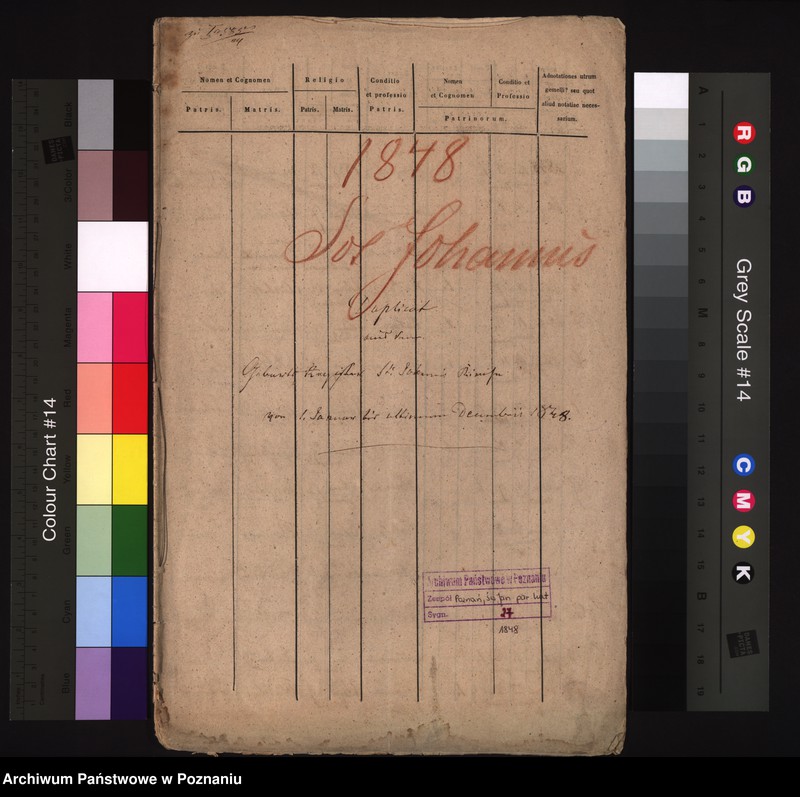 Nomen et Cognomen
Patris.
Matris.
Religio
Patris.
Matris.
Conditio
et professio
Patris.
Nomen
et Cognomen
Conditio et
Professio
Patrinorum.
Adnotationes utrum
gemelli? seu quot
aliud notatiae neces-
sarium.
1848
Sct Johannis
Duplicat
aus dem
Geburts Register St Johannis Kirche
von 1. Januar bis ultimum Decembris 1848.
Archiwum Państwowe w Poznaniu
Zespół Poznań, św Jan par kat
Sygn. 37
1848
Colour Chart #14
Black
3/Color
White
Magenta
Red
Yellow
Green
Cyan
Blue
R
G
B
Grey Scale #14
C
M
Y
K
A
1
2
3
4
5
6
M
8
9
10
11
12
13
14
15
B
17
18
19
DANES
PICTA
Archiwum Państwowe w Poznaniu